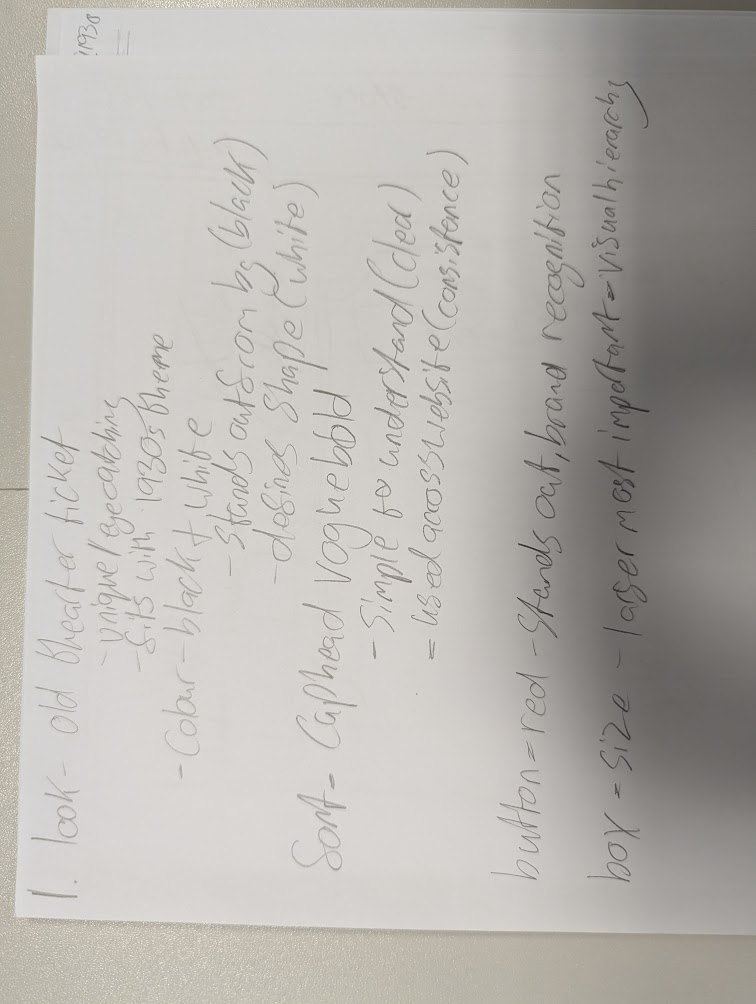 1930
1. look - old thearter ticket
- unique/eyecatching
- fits with 1930s theme
- Colour - black + white
- stands out from bg (black)
- defines shape (white)
font - Caphead Vogue bold
- simple to understand (clear)
= used across website (consistence)
button = red - stands out, brand recognition
box = size - larger most important = visual hierarchy